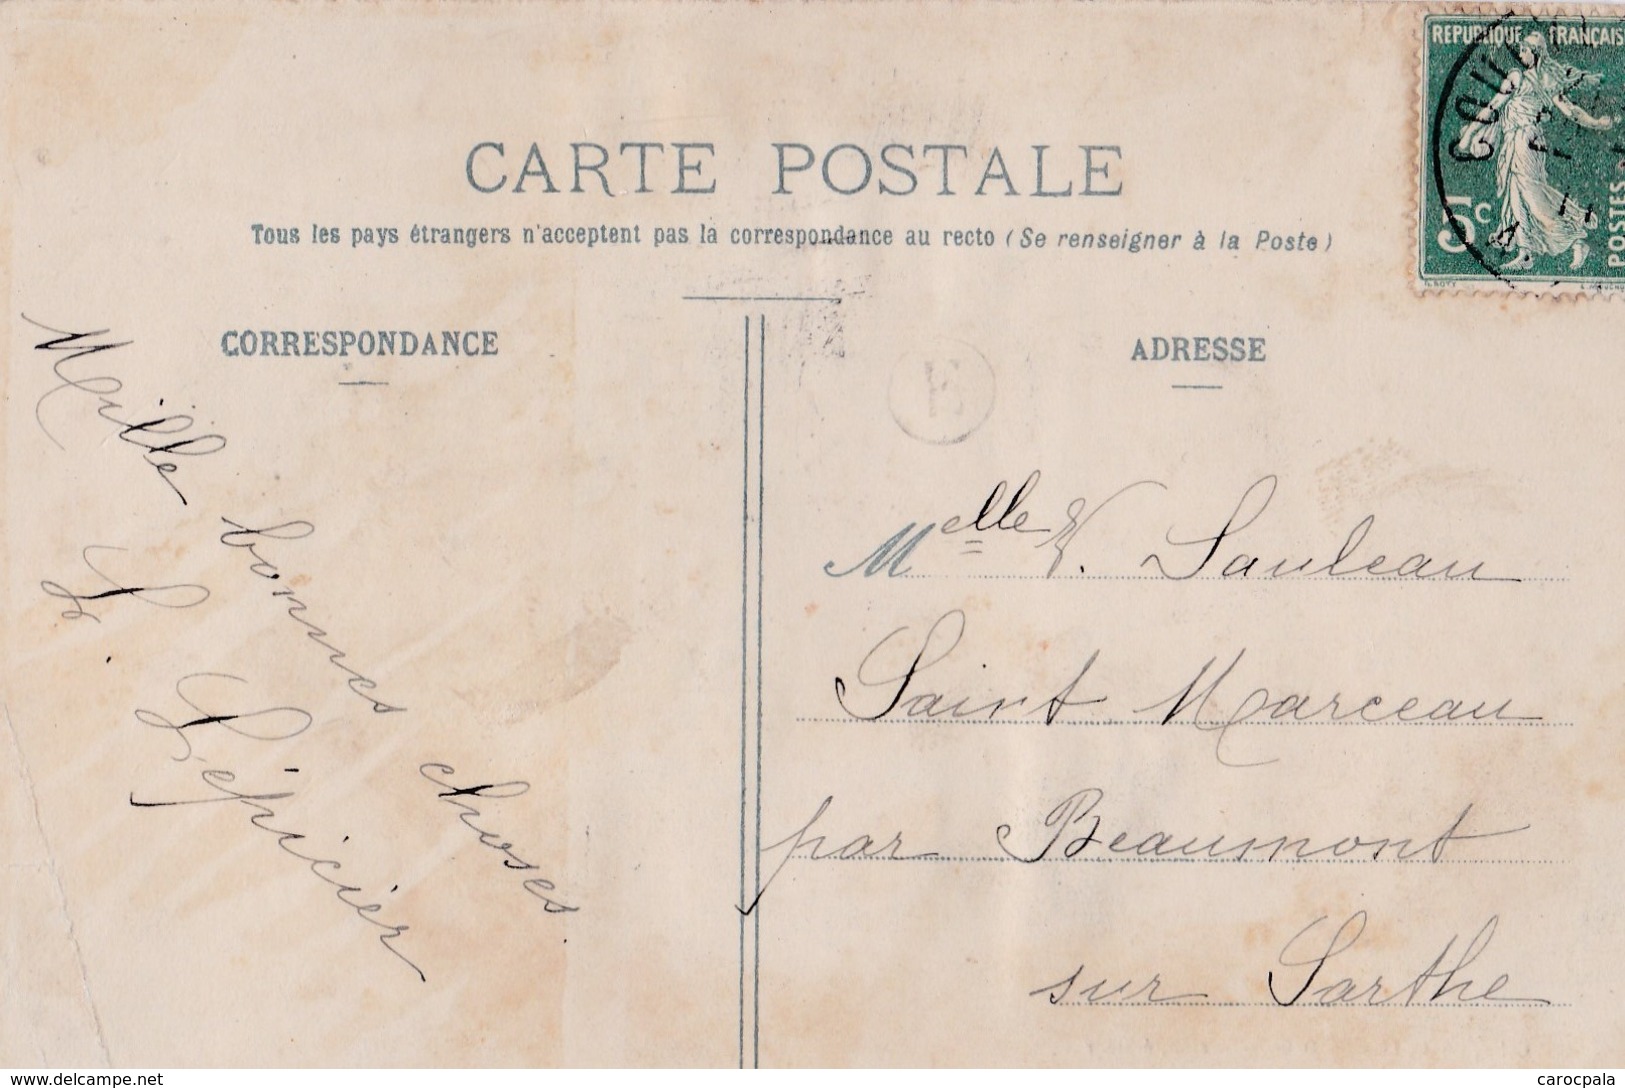 CARTE POSTALE
Tous les pays étrangers n'acceptent pas la correspondance au recto (Se renseigner à la Poste)
CORRESPONDANCE
ADRESSE
REPUBLIQUE FRANÇAIS
5c
POSTES
Mille bonnes choses.
L. Lépicier
Melle V. Sauleau
Saint Marceau
par Beaumont
sur Sarthe
E
www.delcampe.net
carocpala